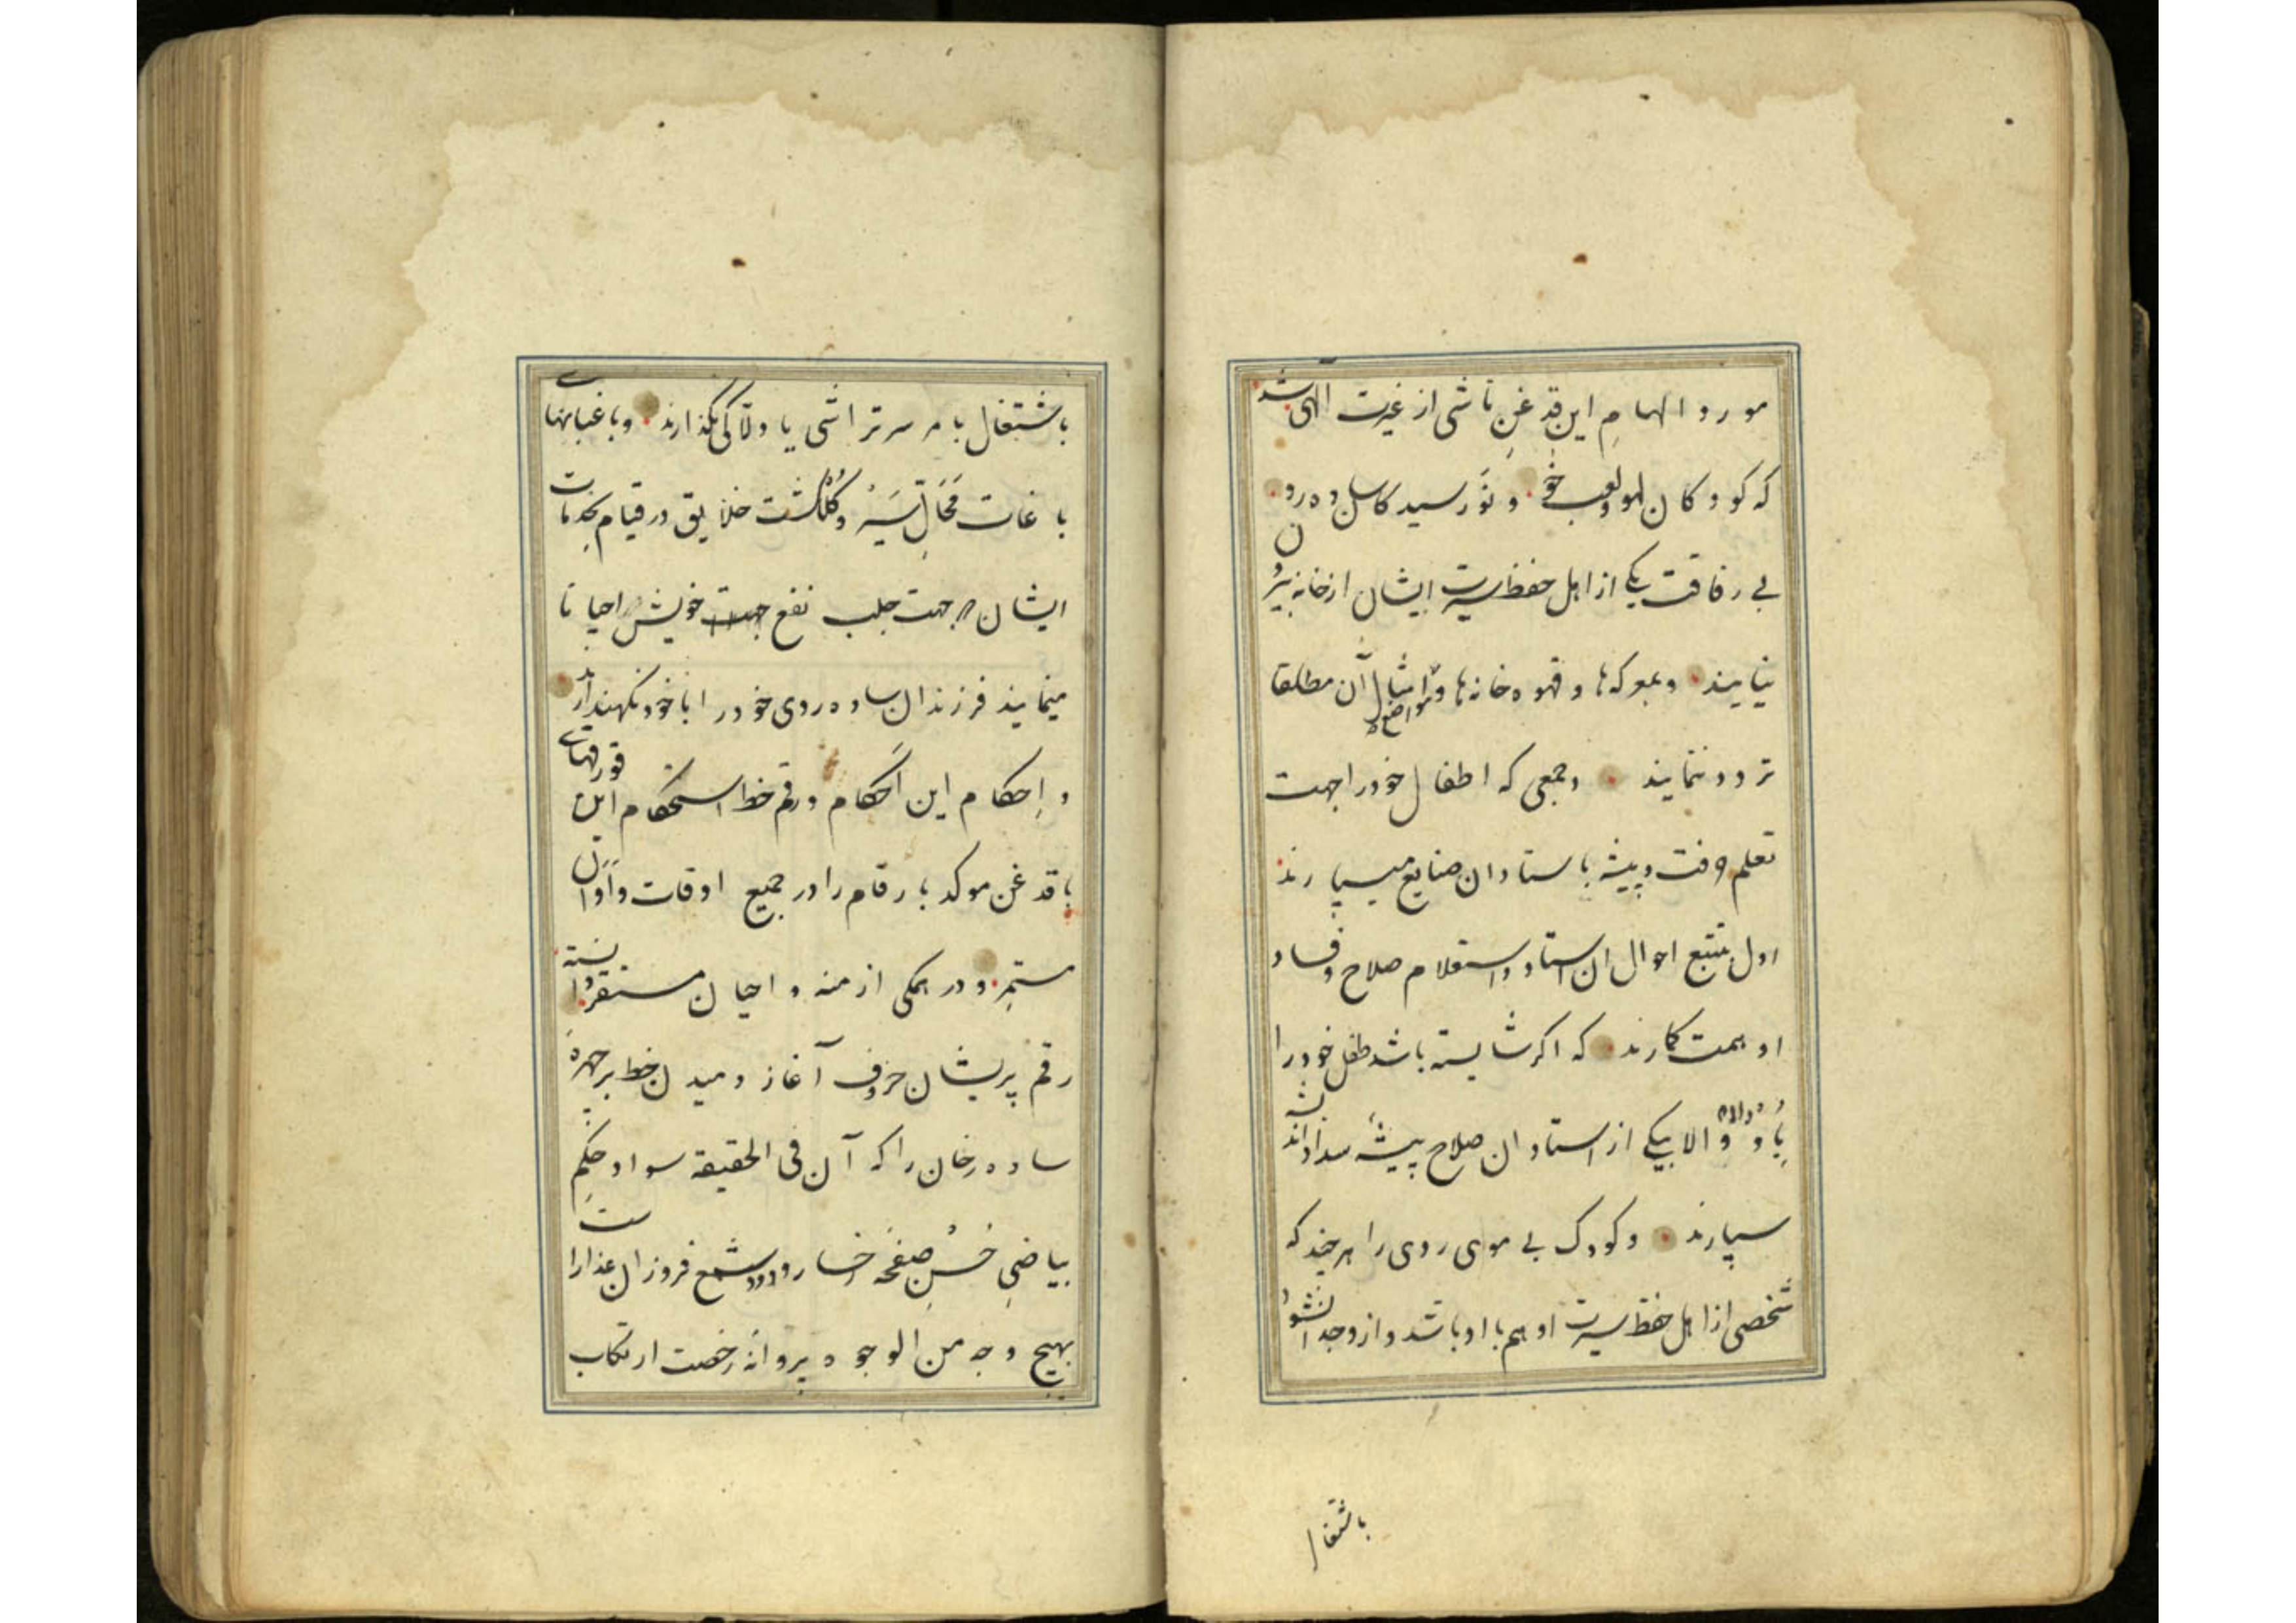 مورد الهامِ این قدغنِ ناشی از غیرت الهی شد
که کودکان لهو و لعب خو و نَوْرسیدگان ساده رو
بی رفاقت یکی از اهل حفظ سیرت ایشان از خانه بیرون
نیایند و بمعرکه‌ها و قهوه خانه‌ها و مواضع امثال آن مطلقا
تردد ننمایند و جمعی که اطفال خود را جهت
تعلم حرفت و پیشه باستادان صنایع میسپارند
اول بتتبع احوال ان استاد و استعلام صلاح و فساد
او همت گمارند که اگر شایسته باشد طفل خود را
باو دهند والا بیکی از استادان صلاح پیشه سداد اندیشه
سپارند و کودک بی موی روی را هر چند که
شخصی از اهل حفظ سیرت او هم با او باشد و از او جدا نشود
باشتغال
باشتغال بامر سرتراشی یا دلاکی نگذارند و باغبانهای
باغات مَحَالِّ سَیْر و گُلگشت خلایق در قیام بخدمات
ایشان جهت جلب نفع خویش احیانا
مینمایند فرزندان ساده روی خود را با خود نگه ندارند
و اِحکام این اَحکام و رقم خط استحکام این قورقهای
باقدغن موکد بارقام را در جمیع اوقات و اَوان
مستمر و در همگی ازمنه و احیان مستقر دانسته
رقم پریشان حروف آغاز دمیدن خط بر چهره
ساده رخان را که آن فی الحقیقه سواد حکمِ
بیاضیِ حُسنِ صفحه رخسار و دود شمع فروزان عذار است
بهیچ وجه من الوجوه پروانه رخصت ارتکاب